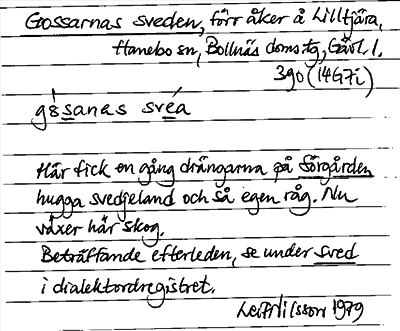 Gossarnas sveden, förr åker å Lilltjära,
Hanebo sn, Bollnäs domstg, Gävl. l.
390 (14G7i)
gósanas svéa
Här fick en gång drängarna på Sörgården
hugga svedjeland och så egen råg. Nu
växer här skog.
Beträffande efterleden, se under sved
i dialektordregistret.
Leif Nilsson 1979